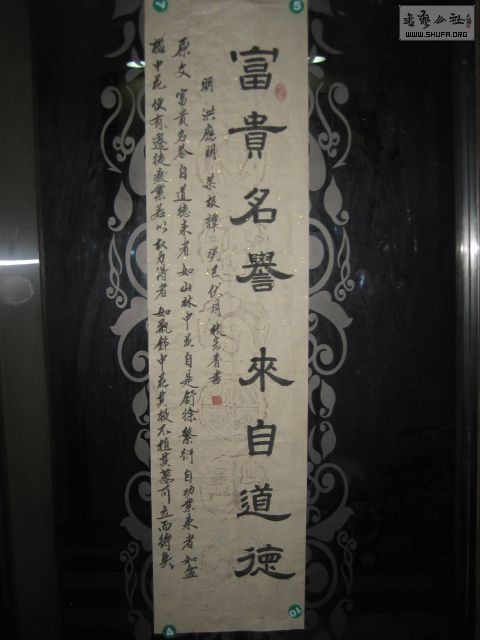 富貴名譽來自道德
明 洪應明 菜根譚 癸巳伏月 林 香書
原文 富貴名誉自道德来者 如山林中花 自是舒徐繁衍 自功業来者 如盆
檻中花 便有遷徙廢業 若以权力得者 如瓶鉢中花 其根不植 其萎可立而待矣
書藝公社
WWW.SHUFA.ORG
7
5
4
10